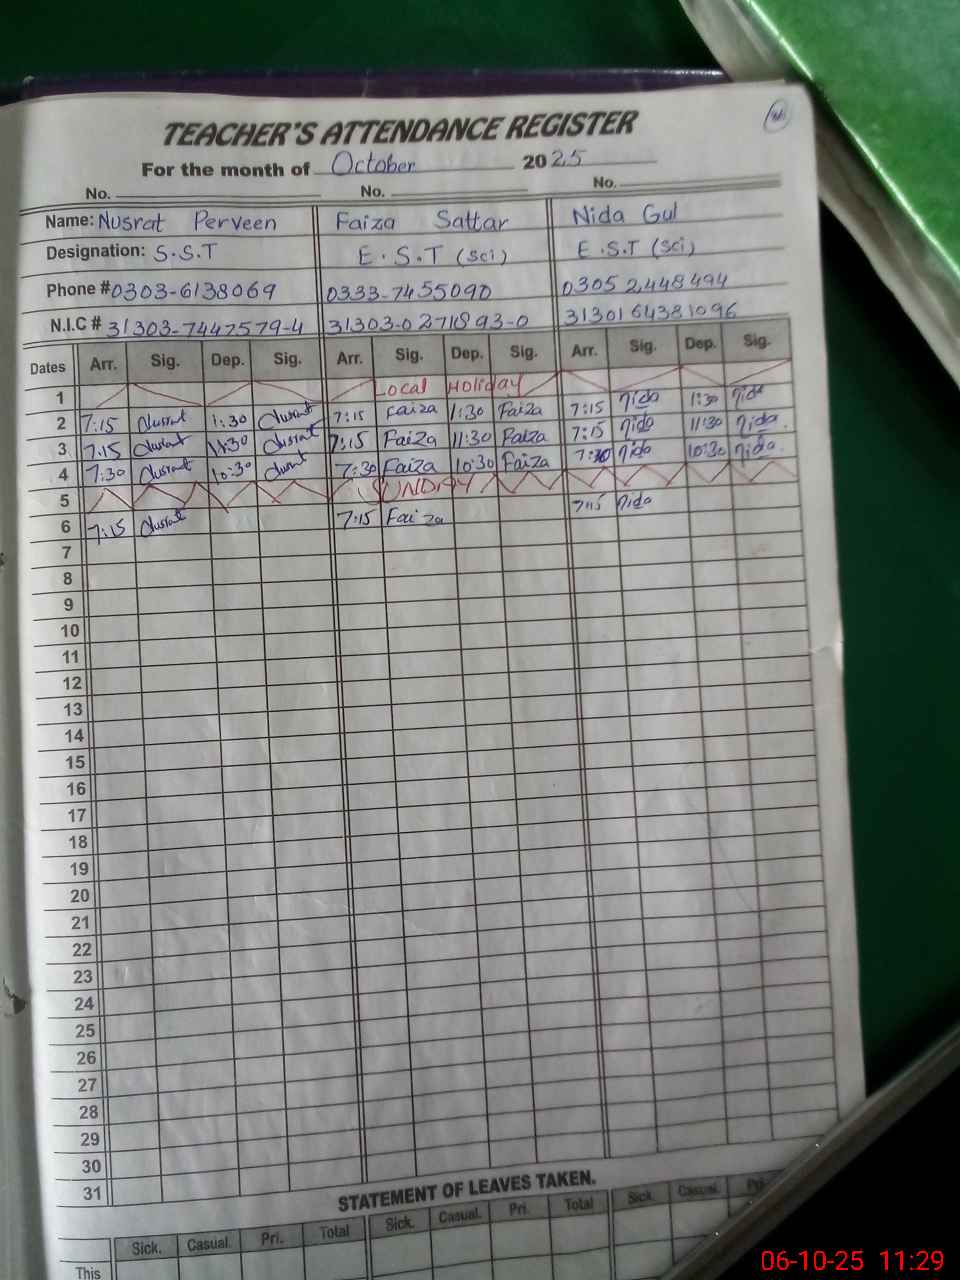 TEACHER'S ATTENDANCE REGISTER
For the month of October 2025
No. No. No.
Name: Nusrat Perveen Faiza Sattar Nida Gul
Designation: S.S.T E.S.T (sci) E.S.T (sci)
Phone # 0303-6138069 0333-7455090 0305 2448494
N.I.C # 31303-7447579-4 31303-0271893-0 3130164381096
Dates Arr. Sig. Dep. Sig. Arr. Sig. Dep. Sig. Arr. Sig. Dep. Sig.
1 Local Holiday
2 7:15 Nusrat 1:30 Nusrat 7:15 Faiza 1:30 Faiza 7:15 Nida 1:30 Nida
3 7:15 Nusrat 11:30 Nusrat 7:15 Faiza 11:30 Faiza 7:15 Nida 11:30 Nida.
4 7:30 Nusrat 10:30 Nusrat 7:30 Faiza 10:30 Faiza 7:30 Nida 10:30 Nida.
5 SUNDAY
6 7:15 Nusrat 7:15 Faiza 7:15 Nida
7
8
9
10
11
12
13
14
15
16
17
18
19
20
21
22
23
24
25
26
27
28
29
30
31
STATEMENT OF LEAVES TAKEN.
Sick. Casual. Pri. Total Sick. Casual. Pri. Total Sick. Casual. Pri.
This
06-10-25 11:29